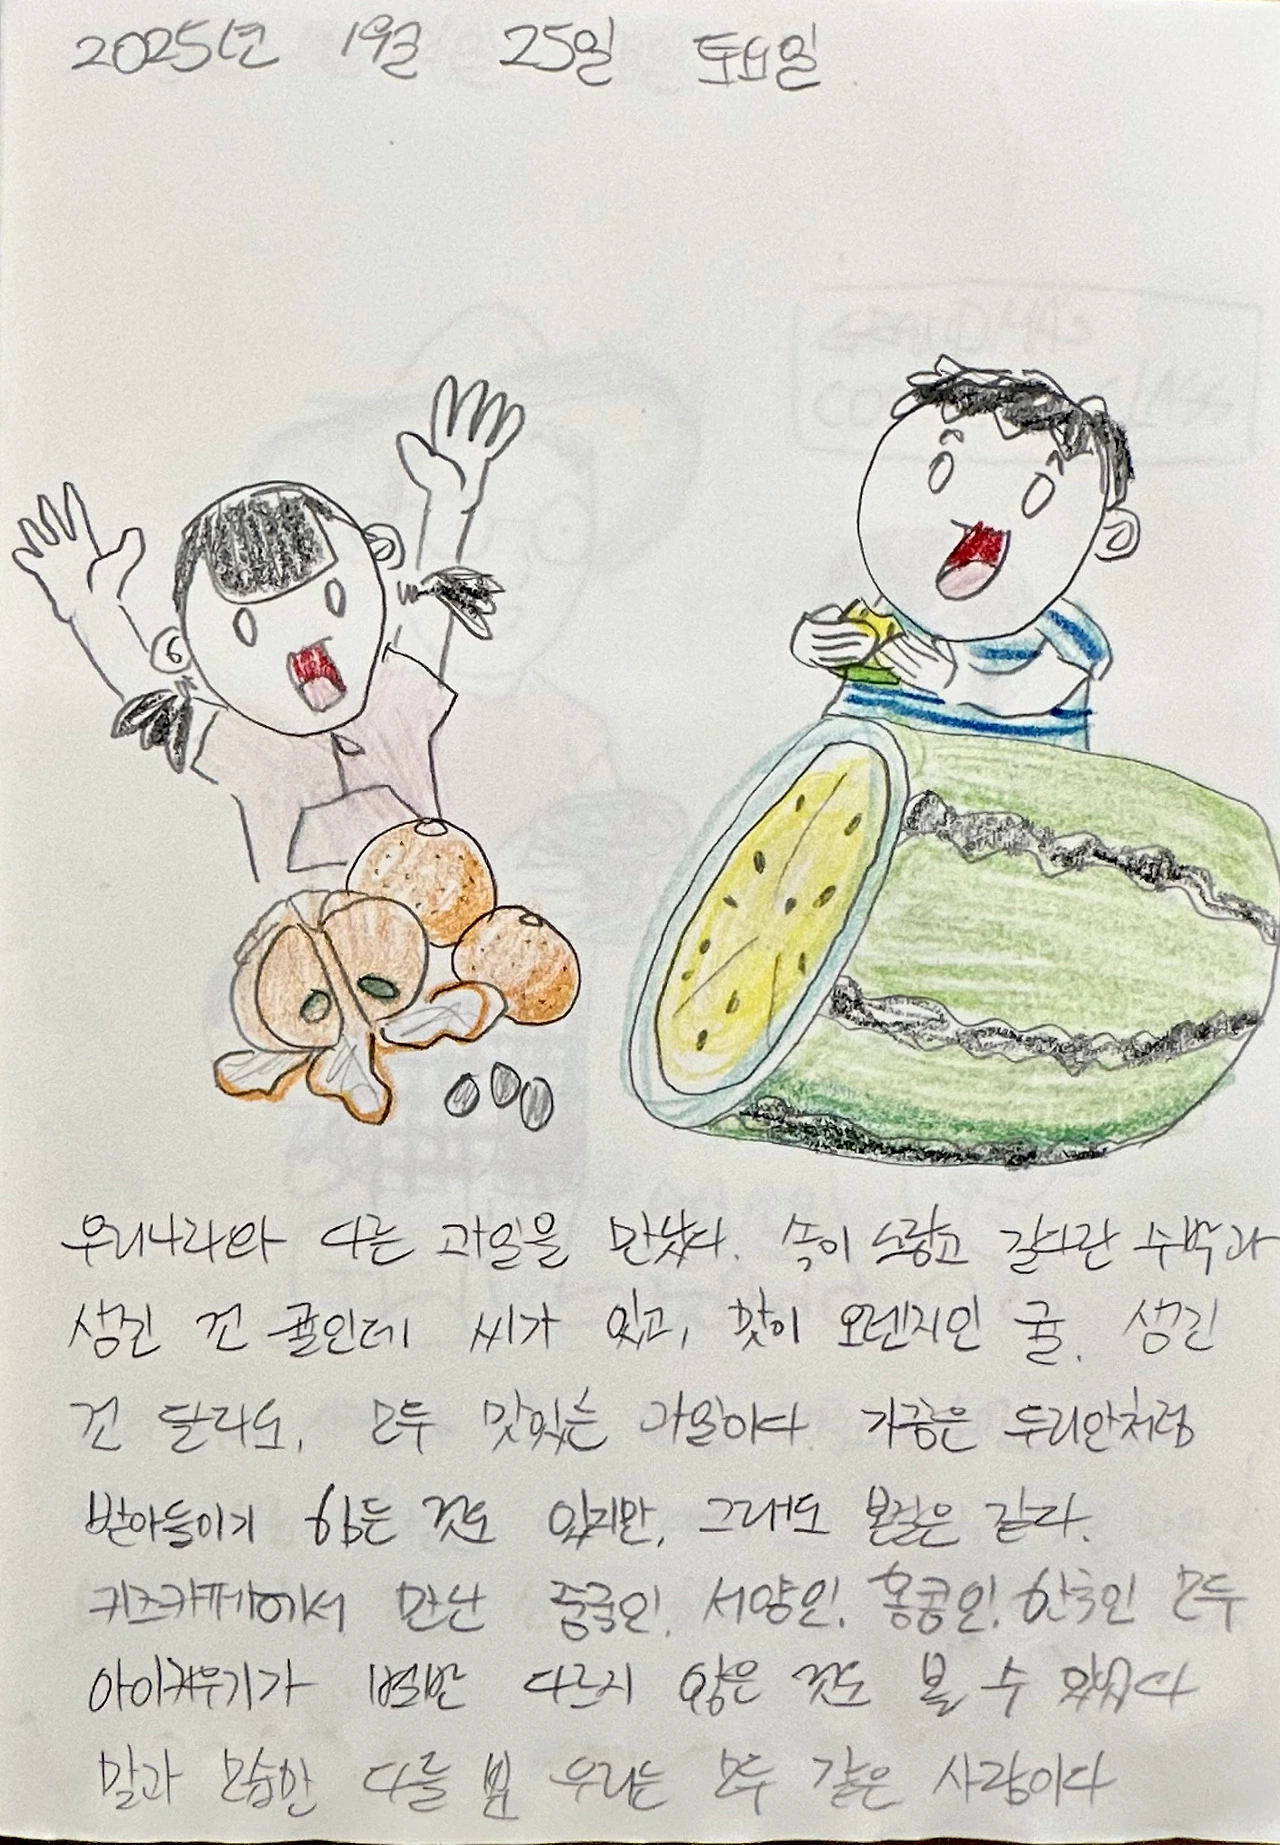 2025년 1월 25일 토요일
우리나라와 다른 과일을 만났다. 속이 노랗고 길다란 수박과
생긴 건 귤인데 씨가 있고, 맛이 오렌지인 귤. 생긴
건 달라도, 모두 맛있는 과일이다. 가끔은 두리안처럼
받아들이기 힘든 것도 있지만, 그래도 본질은 같다.
키즈카페에서 만난 중국인, 서양인, 홍콩인, 한국인 모두
아이키우기가 별반 다르지 않은 것도 볼 수 있었다
말과 모습만 다를 뿐 우리는 모두 같은 사람이다